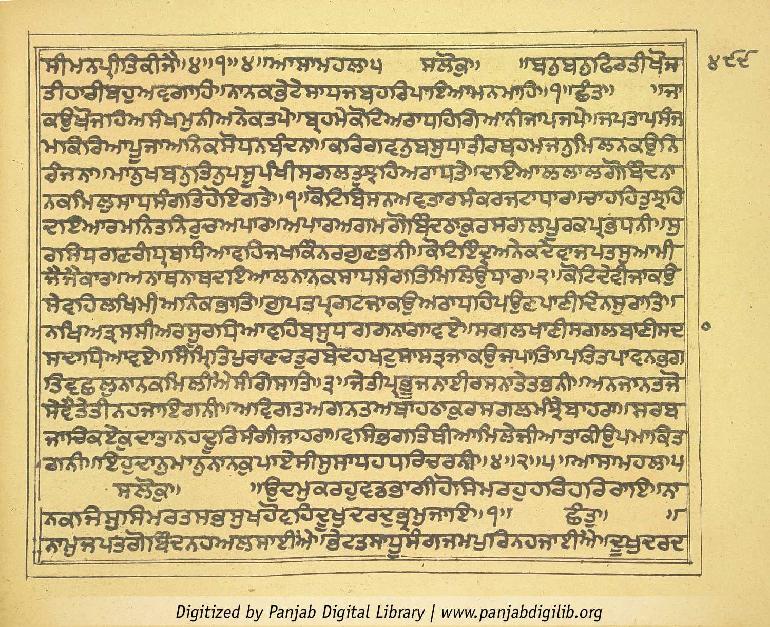 ਸੀਮਨਪ੍ਰੀਤਿਕੀਜੈ॥੪॥੧॥੪॥ਆਸਾਮਹਲਾ੫ ਸਲੋਕੁ॥ ॥ਬਨੁਬਨੁਫਿਰਤੀਖੋਜ ੪੯੯
ਤੀਹਾਰੀਬਹੁਅਵਗਾਹਿ॥ਨਾਨਕਭੇਟੇਸਾਧਜਬਹਰਿਪਾਇਆਮਨਮਾਹਿ॥੧॥ਛੰਤ॥ ॥ਜਾ
ਕਉਖੋਜਹਿਅਸੰਖਮੁਨੀਅਨੇਕਤਪੇ॥ਬ੍ਰਹਮੇਕੋਟਿਅਰਾਧਹਿਗਿਆਨੀਜਾਪਜਪੇ॥ਜਪਤਾਪਸੰਜ
ਮਕਿਰਿਆਪੂਜਾਅਨਿਕਸੋਧਨਬੰਦਨਾ॥ਕਰਿਗਵਨੁਬਸੁਧਾਤੀਰਥਹਮਜਨੁਮਿਲਨਕਉਨਿ
ਰੰਜਨਾ॥ਮਾਨੁਖਬਨੁਤਿਨੁਪਸੂਪੰਖੀਸਗਲਤੁਝਹਿਅਰਾਧਤੇ॥ਦਇਆਲਲਾਲਗੋਬਿੰਦਨਾ
ਨਕਮਿਲੁਸਾਧਸੰਗਤਿਹੋਇਗਤੇ॥੧॥ਕੋਟਿਬਿਸਨਅਵਤਾਰਸੰਕਰਜਟਾਧਾਰ॥ਚਾਹਹਿਤੁਝਹਿ
ਦਇਆਰਮਨਿਤਨਿਰੁਚਅਪਾਰ॥ਅਪਾਰਅਗਮਗੋਬਿੰਦਠਾਕੁਰਸਗਲਪੂਰਕਪ੍ਰਭਧਨੀ॥ਸੁ
ਰਸਿਧਗਣਗੰਧ੍ਰਬਧਿਆਵਹਿਜਖਕਿੰਨਰਗੁਣਭਨੀ॥ਕੋਟਿਇੰਦ੍ਰਅਨੇਕਦੇਵਾਜਪਤਸੁਆਮੀ
ਜੈਜੈਕਾਰ॥ਅਨਾਥਨਾਥਦਇਆਲਨਾਨਕਸਾਧਸੰਗਤਿਮਿਲਿਉਧਾਰ॥੨॥ਕੋਟਿਦੇਵੀਜਾਕਉ
ਸੇਵਹਿਲਖਿਮੀਅਨਿਕਭਾਤਿ॥ਗੁਪਤਪ੍ਰਗਟਜਾਕਉਅਰਾਧਹਿਪਉਣਪਾਣੀਦਿਨਸੁਰਾਤਿ॥
ਨਖਿਅਤ੍ਰਸਸੀਅਰਸੂਰਧਿਆਵਹਿਬਸੁਧਗਗਨਾਗਾਵਏ॥ਸਗਲਖਾਣੀਸਗਲਬਾਣੀਸਦ
ਸਦਾਧਿਆਵਏ॥ਸਿੰਮ੍ਰਿਤਿਪੁਰਾਣਚਤੁਰਬੇਦਹਖਟੁਸਾਸਤ੍ਰਜਾਕਉਜਪਾਤਿ॥ਪਤਿਤਪਾਵਨਭਗ
ਤਿਵਛਲੁਨਾਨਕਮਿਲੀਐਸੰਗਿਸਾਤਿ॥੩॥ਜੇਤੀਪ੍ਰਭੂਜਨਾਈਰਸਨਾਤੇਤਭਨੀ॥ਅਨਜਾਨਤਜੋ
ਸੇਵੈਤੇਤੀਨਹਜਾਇਗਨੀ॥ਅਵਿਗਤਅਗਨਤਅਥਾਹਠਾਕੁਰਸਗਲਮੰਝੈਬਾਹਰਾ॥ਸਰਬ
ਜਾਚਿਕਏਕੁਦਾਤਾਨਹਦੂਰਿਸੰਗੀਜਾਹਰਾ॥ਵਸਿਭਗਤਿਥੀਆਮਿਲੇਜੀਆਤਾਕੀਉਪਮਾਕਿਤ
ਗਨੀ॥ਇਹੁਦਾਨੁਮਾਨੁਨਾਨਕੁਪਾਏਸੀਸੁਸਾਧਹਧਰਿਚਰਨੀ॥੪॥੨॥੫॥ਆਸਾਮਹਲਾ੫
ਸਲੋਕੁ॥ ॥ਉਦਮੁਕਰਹੁਵਡਭਾਗੀਹੋਸਿਮਰਹੁਹਰਿਹਰਿਰਾਇ॥ਨਾ
ਨਕਜਿਸੁਸਿਮਰਤਸਭਸੁਖਹੋਵਹਿਦੂਖੁਦਰਦੁਭ੍ਰਮੁਜਾਇ॥੧॥ ਛੰਤੁ॥ ॥
ਨਾਮੁਜਪਤਗੋਬਿੰਦਨਹਅਲਸਾਈਐ॥ਭੇਟਤਸਾਧੂਸੰਗਜਮਪੁਰਿਨਹਜਾਈਐ॥ਦੂਖੁਦਰਦ
Digitized by Panjab Digital Library | www.panjabdigilib.org